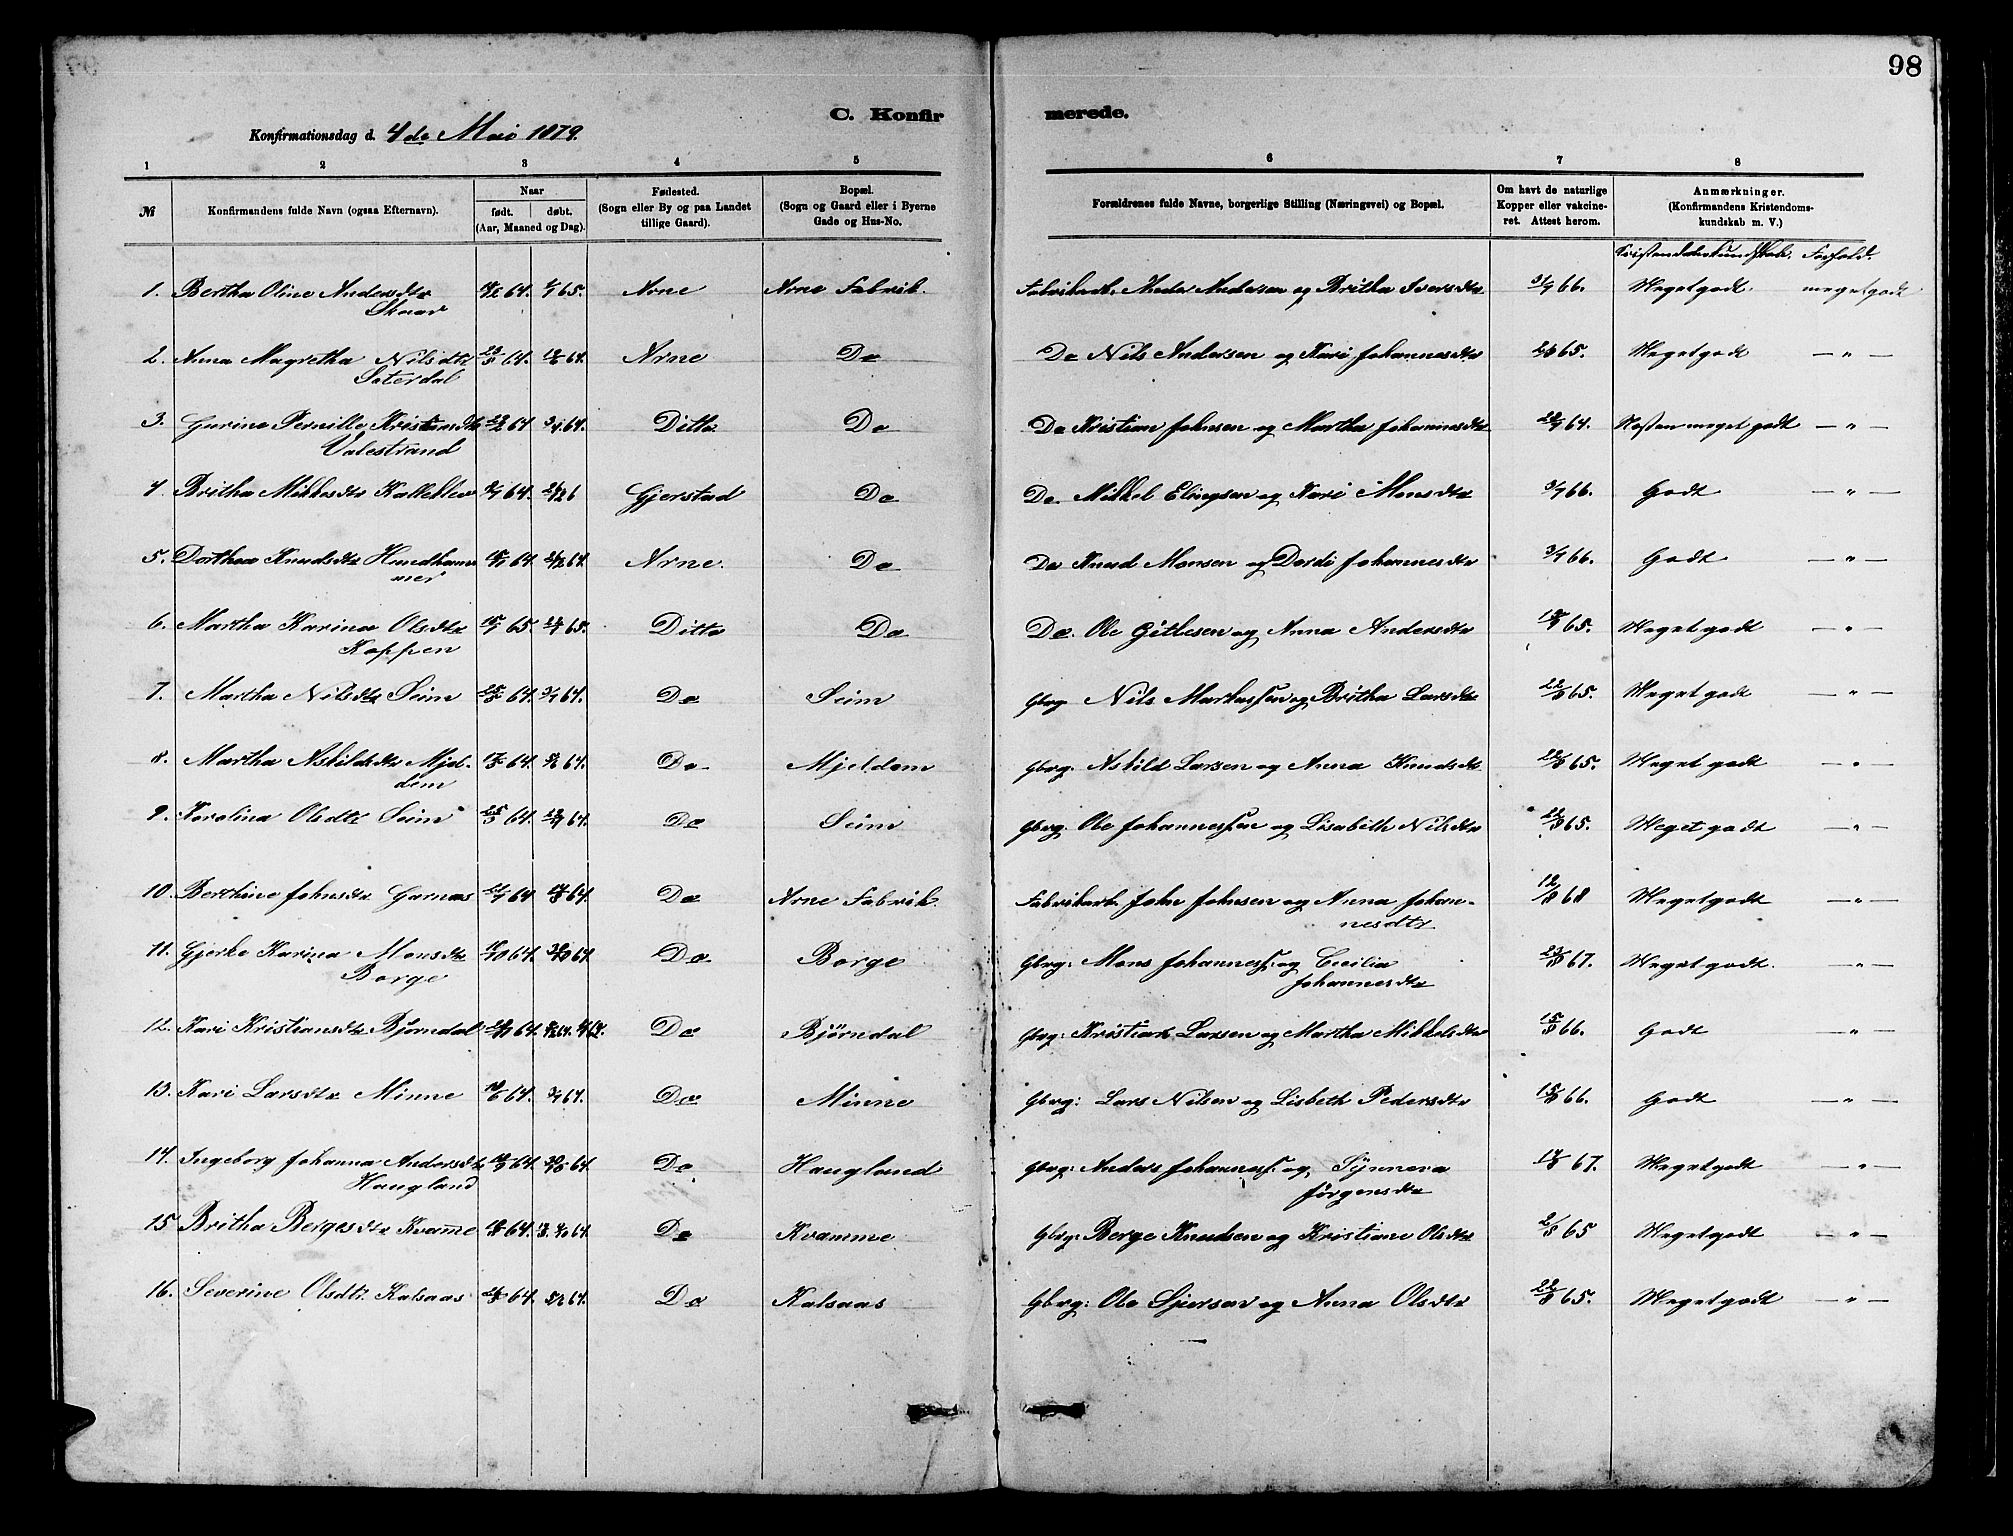 98
C. Konfirmerede.
Konfirmationsdag d. 4de Mai 1879.
1 2 3 4 5 6 7 8
№ Konfirmandens fulde Navn (ogsaa Efternavn).
Naar
født. døbt.
(Aar, Maaned og Dag).
Fødested.
(Sogn eller By og paa Landet
tillige Gaard).
Bopæl.
(Sogn og Gaard eller i Byerne
Gade og Hus-No.
Forældrenes fulde Navne, borgerlige Stilling (Næringsvei) og Bopæl.
Om havt de naturlige
Kopper eller vakcine-
ret. Attest herom.
Anmærkninger.
(Konfirmandens Kristendoms-
kundskab m. V.)
Kristendomskundskab. Forhold.
1. Bertha Oline Andersdtr 64. 65. Arne Arne Fabrik. Fabrikarb. Anders Andersen og Britha Iversdtr 3/9 66. Meget godt meget godt
Skaar
2. Anna Magretha Nilsdtr 64. 64. Arne Do Do Nils Andersen og Kari Johannesdtr 65. Meget godt — " —
Saterdal
3. Gurine Pernille Kristiandtr 64 64. Ditto Do Do Kristian Johnsen og Martha Johannesdtr 64. Næsten meget godt — " —
Valestrand
4. Britha Mikkesdtr Kalleklev 64. Gjerstad Do Do Mikkel Elingsen og Kari Monsdtr 3/9 66. Godt — " —
5. Dorthea Knudsdtr Hundham 64. 64. Arne. Do Do Knud Monsen og Dordi Johannesdtr 3/9 66. Godt — " —
mer
6. Martha Karina Olsdtr 65. 65. Ditto Do Do. Ole Githesen og Anna Andersdtr 65. Meget godt — " —
Koppen
7. Martha Nilsdtr Seim 64. 64. Do Seim Gbrg Nils Markussen og Britha Larsdtr 22/8 65. Meget godt — " —
8. Martha Askildsdtr Mjel- 64. 64. Do Mjeldem Gbrg. Askild Larsen og Anna Knudsdtr 22/8 65. Meget godt — " —
dem
9. Karolina Olsdtr Seim 64. 64. Do Seim Gbrg. Ole Johannessen og Lisabeth Nilsdtr 22/8 65. Meget godt — " —
10. Berthine Johnsdtr Garnæs 64 64. Do Arne Fabrik. Fabrikarb. John Johnsen og Anna Johan- 12/8 68 Meget godt — " —
nesdtr
11. Gjerke Karina Monsdtr 64. 64. Do Borge Gbrg: Mons Johanness. og Cecilia 67. Meget godt. — " —
Borge Johannesdtr
12. Kari Kristiansdtr Bjørndal 64. 64. Do Bjørndal Gbrg: Kristian Larsen og Martha Mikkelsdtr 15/8 66. Godt — " —
13. Kari Larsdtr Minne 64. 64. Do Minne Gbrg: Lars Nilsen og Lisbeth Pedersdtr 15/8 66. Godt — " —
14. Ingeborg Johanna Andersdtr 64. 64. Do Haugland Gbrg: Anders Johanness. og Synneva 67. Meget godt — " —
Haugland Jørgensdtr
15 Britha Bergesdtr Kvamme 64. 64. Do Kvamme Gbrg: Berge Knudsen og Kristiane Olsdtr 2/8 65 Meget godt — " —
16. Severine Olsdtr Kalsaas 64. 64. Do Kalsaas Gbrg: Ole Sjursen og Anna Olsdtr 22/8 65. Meget godt — " —